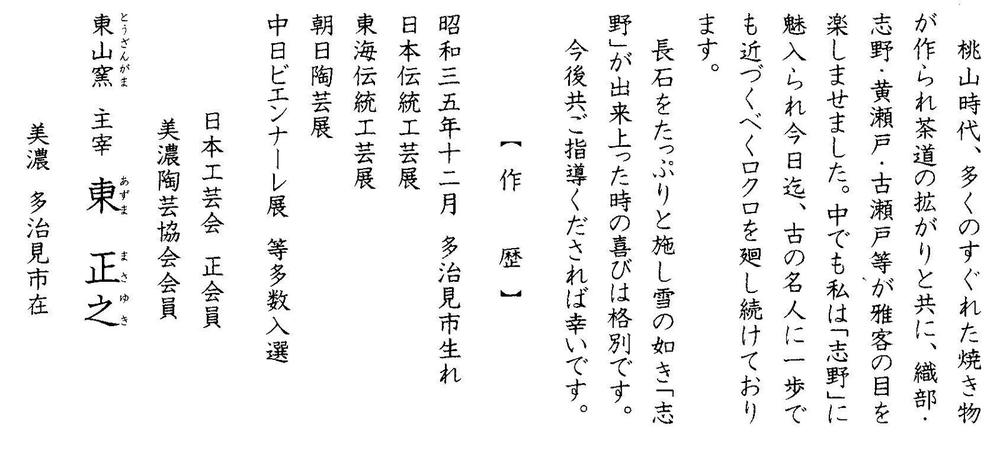 桃山時代、多くのすぐれた焼き物
が作られ茶道の拡がりと共に、織部・
志野・黄瀬戸・古瀬戸等が雅客の目を
楽しませました。中でも私は「志野」に
魅入られ今日迄、古の名人に一歩で
も近づくべくロクロを廻し続けており
ます。
長石をたっぷりと施し雪の如き「志
野」が出来上った時の喜びは格別です。
今後共ご指導くだされば幸いです。
【作 歴】
昭和三五年十二月 多治見市生れ
日本伝統工芸展
東海伝統工芸展
朝日陶芸展
中日ビエンナーレ展 等多数入選
日本工芸会 正会員
美濃陶芸協会会員
とうざんがま あずま まさゆき
東山窯 主宰 東 正之
美濃 多治見市在